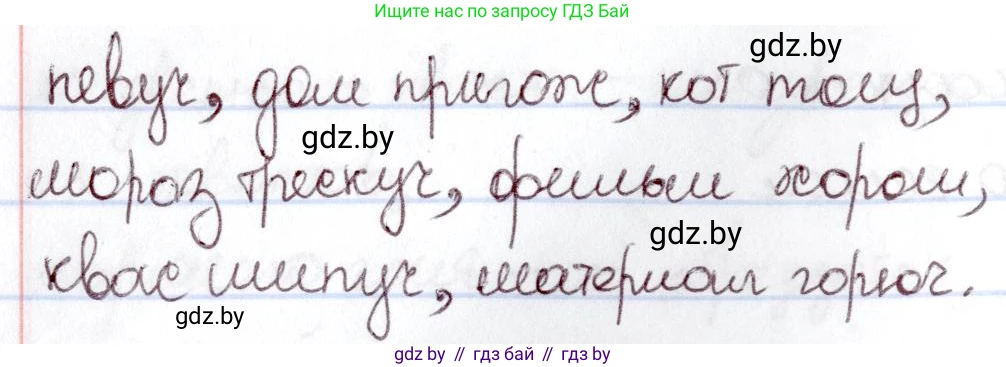 Ищите нас по запросу ГДЗ Бай
gdz.by
певуч, дом пригож, кот тощ,
gdz.by
мороз трескуч, фильм хорош,
gdz.by
квас шипуч, материал горюч.
gdz.by
gdz by // гдз бай // гдз by